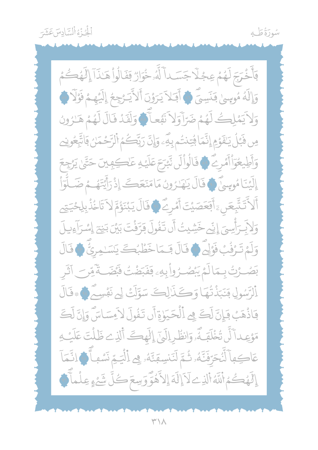 سُورَةُ طَهَ
الجُزْءُ السَّادِسَ عَشَرَ
فَأَخْرَجَ لَهُمْ عِجْلًا جَسَداً لَّهُ خُوَارٌ فَقَالُواْ هَذَا إِلَهُكُمْ
وَإِلَهُ مُوسِىٰ فَنَسِىَ أَفَلَا يَرَوْنَ أَلَّا يَرْجِعُ إِلَيْهِمْ قَوْلًا
وَلَا يَمْلِكُ لَهُمْ ضَرّاً وَلَا نَفْعاً وَلَقَدْ قَالَ لَهُمْ هَارُونُ
مِن قَبْلُ يَقَوْمِ إِنَّمَا فُتِنتُم بِهِ وَإِنَّ رَبَّكُمُ الرَّحْمَنُ فَاتَّبِعُونِے
وَأَطِيعُواْ أَمْرِے قَالُواْ لَن نَّبْرَحَ عَلَيْهِ عَكِفِينَ حَتَّىٰ يَرْجِعَ
إِلَيْنَا مُوسِىٰ قَالَ يَهَرُونُ مَا مَنَعَكَ إِذْ رَأَيْتَهُمْ ضَلُّواْ
أَلَّا تَتَّبِعَنِ أَفَعَصَيْتَ أَمْرِے قَالَ يَبْنَؤُمَّ لَا تَأْخُذْ بِلِحْيَتِے
وَلَا بِرَأْسِىَ إِنِّے خَشِيتُ أَن تَقُولَ فَرَّقْتَ بَيْنَ بَنِے إِسْرَآءِيلَ
وَلَمْ تَرْقُبْ قَوْلِے قَالَ فَمَا خَطْبُكَ يَسَمِرِىُّ قَالَ
بَصُرْتُ بِمَا لَمْ يَبْصُرُواْ بِهِ فَقَبَضْتُ قَبْضَةً مِّنَ اَثَرِ
الرَّسُولِ فَنَبَذْتُهَا وَكَذَلِكَ سَوَّلَتْ لِے نَفْسِے قَالَ
فَاذْهَبْ فَإِنَّ لَكَ فِے الْحَيَوٰةِ أَن تَقُولَ لَا مِسَاسَ وَإِنَّ لَكَ
مَوْعِداً لَّن تُخْلَفَهُ وَانظُرِ إِلَىٰ إِلَهِكَ الَّذِے ظَلْتَ عَلَيْهِ
عَاكِفاً لَّنُحَرِّقَنَّهُ ثُمَّ لَنَنسِفَنَّهُ فِے الْيَمِّ نَسْفاً إِنَّمَا
إِلَهُكُمُ اللَّهُ الَّذِے لَا إِلَهَ إِلَّا هُوَ وَسِعَ كُلَّ شَيْءٍ عِلْماً
٣١٨